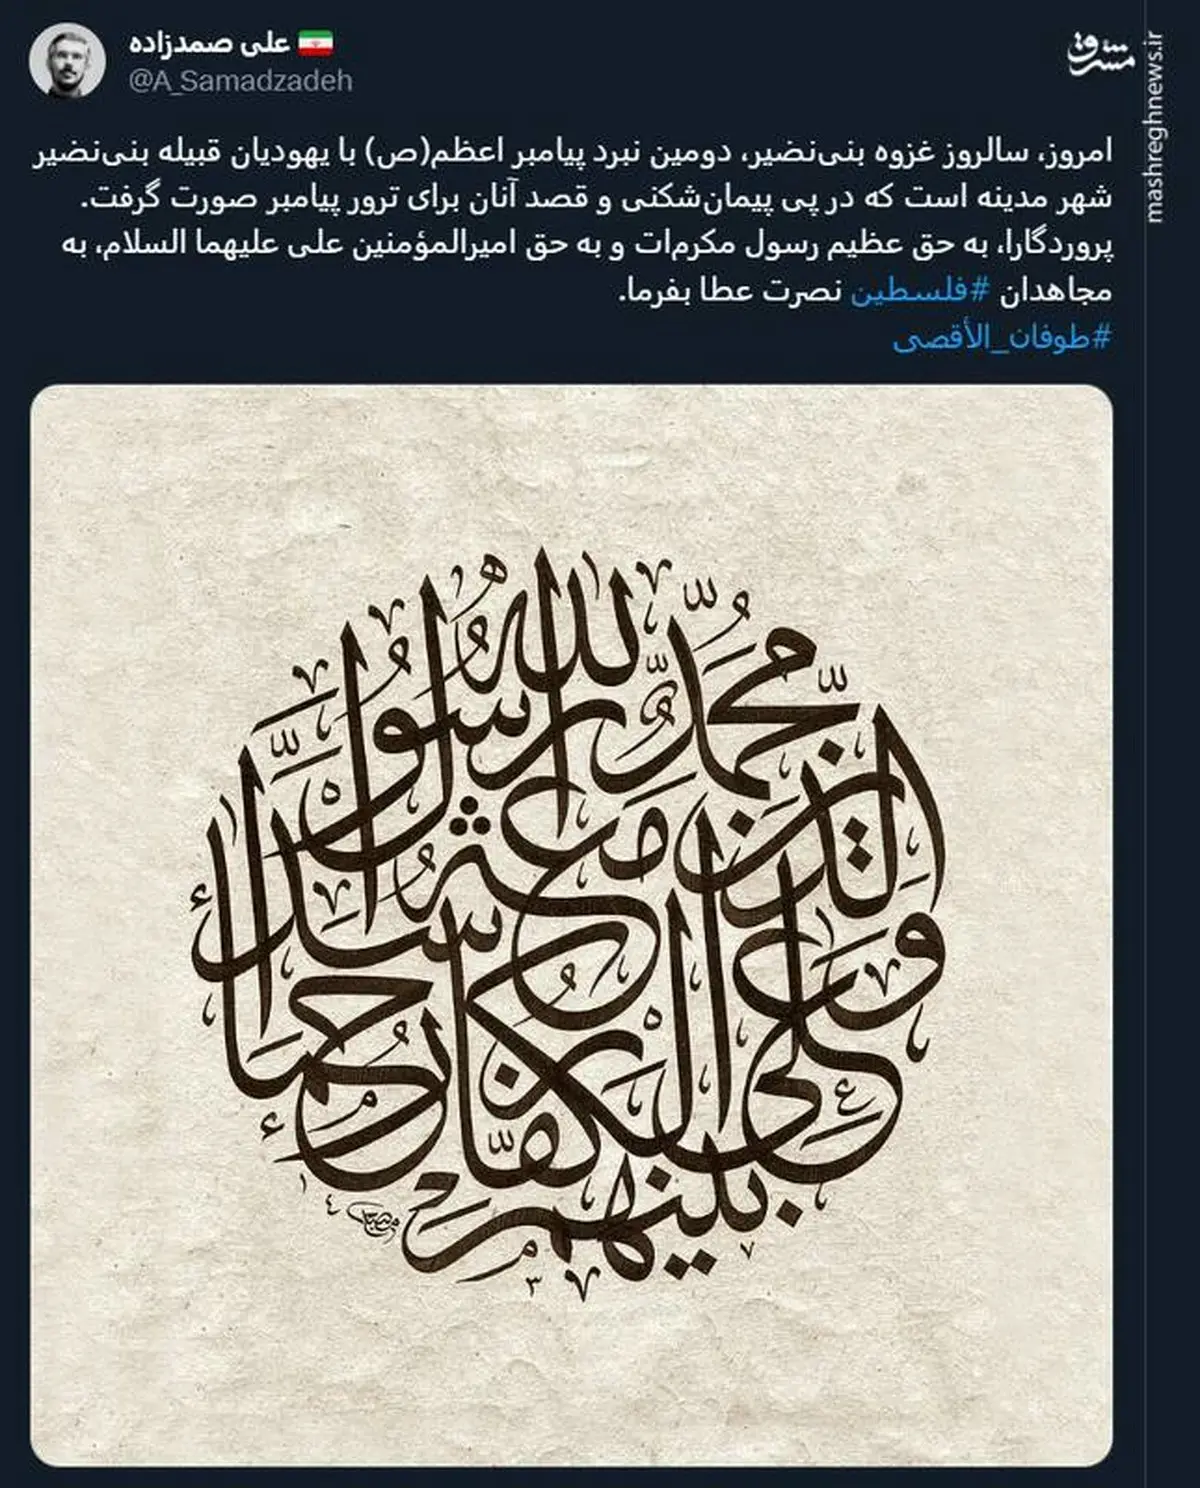 علی صمدزاده
@A_Samadzadeh
مشرق
mashreghnews.ir
امروز، سالروز غزوه بنی‌نضیر، دومین نبرد پیامبر اعظم(ص) با یهودیان قبیله بنی‌نضیر
شهر مدینه است که در پی پیمان‌شکنی و قصد آنان برای ترور پیامبر صورت گرفت.
پروردگارا، به حق عظیم رسول مکرم‌ات و به حق امیرالمؤمنین علی علیهما السلام، به
مجاهدان #فلسطین نصرت عطا بفرما.
#طوفان_الأقصی
محمد رسول الله
والذین معه أشداء
علی الکفار رحماء
بینهم